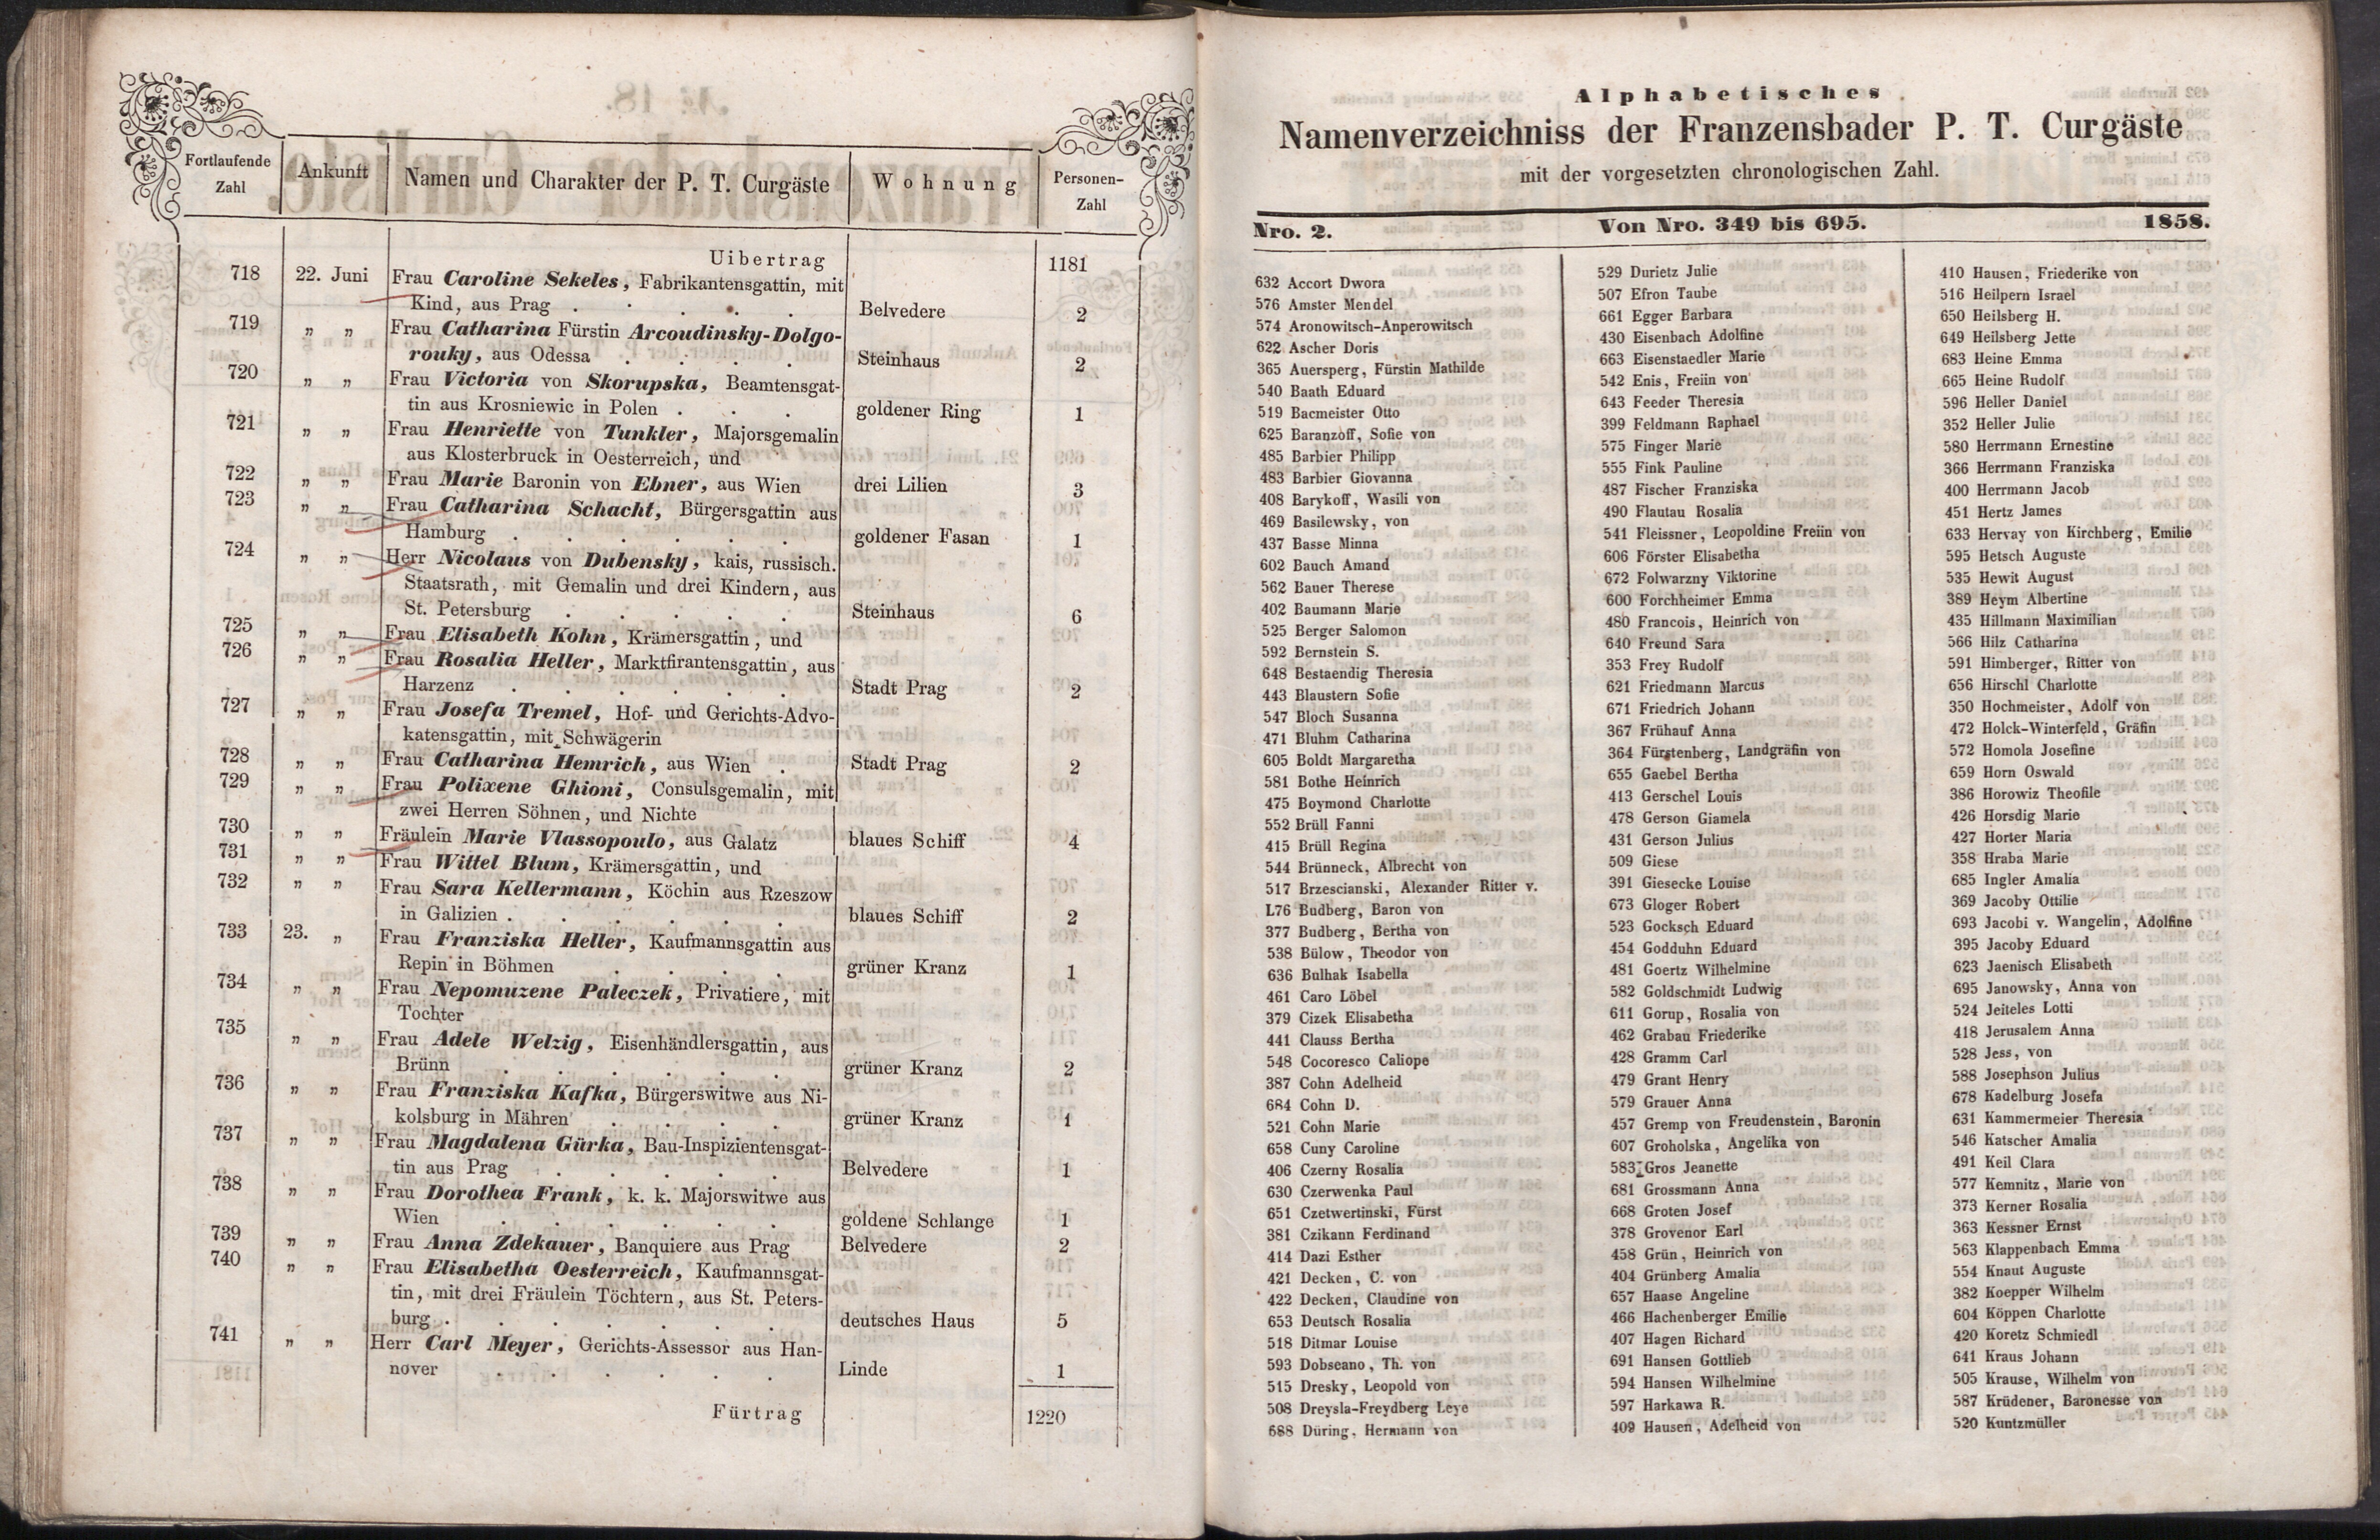 Fortlaufende Zahl | Ankunft | Namen und Charakter der P. T. Curgäste | Wohnung | Personen-Zahl
Uibertrag 1181
718 22. Juni Frau Caroline Sekeles, Fabrikantensgattin, mit
Kind, aus Prag . . . . Belvedere 2
719 „ „ Frau Catharina Fürstin Arcoudinsky-Dolgo-
rouky, aus Odessa . . . . Steinhaus 2
720 „ „ Frau Victoria von Skorupska, Beamtensgat-
tin aus Krosniewic in Polen . . . goldener Ring 1
721 „ „ Frau Henriette von Tunkler, Majorsgemalin
aus Klosterbruck in Oesterreich, und
722 „ „ Frau Marie Baronin von Ebner, aus Wien drei Lilien 3
723 „ „ Frau Catharina Schacht, Bürgersgattin aus
Hamburg . . . . . . goldener Fasan 1
724 „ „ Herr Nicolaus von Dubensky, kais, russisch.
Staatsrath, mit Gemalin und drei Kindern, aus
St. Petersburg . . . . . Steinhaus 6
725 „ „ Frau Elisabeth Kohn, Krämersgattin, und
726 „ „ Frau Rosalia Heller, Marktfirantensgattin, aus
Harzenz . . . . . . Stadt Prag 2
727 „ „ Frau Josefa Tremel, Hof- und Gerichts-Advo-
katensgattin, mit Schwägerin
728 „ „ Frau Catharina Hemrich, aus Wien . Stadt Prag 2
729 „ „ Frau Polixene Ghioni, Consulsgemalin, mit
zwei Herren Söhnen, und Nichte
730 „ „ Fräulein Marie Vlassopoulo, aus Galatz blaues Schiff 4
731 „ „ Frau Wittel Blum, Krämersgattin, und
732 „ „ Frau Sara Kellermann, Köchin aus Rzeszow
in Galizien . . . . . . blaues Schiff 2
733 23. „ Frau Franziska Heller, Kaufmannsgattin aus
Repin in Böhmen . . . . grüner Kranz 1
734 „ „ Frau Nepomuzene Paleczek, Privatiere, mit
Tochter
735 „ „ Frau Adele Welzig, Eisenhändlersgattin, aus
Brünn . . . . . . grüner Kranz 2
736 „ „ Frau Franziska Kafka, Bürgerswitwe aus Ni-
kolsburg in Mähren . . . . grüner Kranz 1
737 „ „ Frau Magdalena Gürka, Bau-Inspizientensgat-
tin aus Prag . . . . . Belvedere 1
738 „ „ Frau Dorothea Frank, k. k. Majorswitwe aus
Wien . . . . . . goldene Schlange 1
739 „ „ Frau Anna Zdekauer, Banquiere aus Prag Belvedere 2
740 „ „ Frau Elisabetha Oesterreich, Kaufmannsgat-
tin, mit drei Fräulein Töchtern, aus St. Peters-
burg . . . . . . . deutsches Haus 5
741 „ „ Herr Carl Meyer, Gerichts-Assessor aus Han-
nover . . . . . . Linde 1
Fürtrag 1220
Alphabetisches
Namenverzeichniss der Franzensbader P. T. Curgäste
mit der vorgesetzten chronologischen Zahl.
Nro. 2. Von Nro. 349 bis 695. 1858.
632 Accort Dwora
576 Amster Mendel
574 Aronowitsch-Anperowitsch
622 Ascher Doris
365 Auersperg, Fürstin Mathilde
540 Baath Eduard
519 Bacmeister Otto
625 Baranzoff, Sofie von
485 Barbier Philipp
483 Barbier Giovanna
408 Barykoff, Wasili von
469 Basilewsky, von
437 Basse Minna
602 Bauch Amand
562 Bauer Therese
402 Baumann Marie
525 Berger Salomon
592 Bernstein S.
648 Bestaendig Theresia
443 Blaustern Sofie
547 Bloch Susanna
471 Bluhm Catharina
605 Boldt Margaretha
581 Bothe Heinrich
475 Boymond Charlotte
552 Brüll Fanni
415 Brüll Regina
544 Brünneck, Albrecht von
517 Brzescianski, Alexander Ritter v.
L76 Budberg, Baron von
377 Budberg, Bertha von
538 Bülow, Theodor von
636 Bulhak Isabella
461 Caro Löbel
379 Cizek Elisabetha
441 Clauss Bertha
548 Cocoresco Caliope
387 Cohn Adelheid
684 Cohn D.
521 Cohn Marie
658 Cuny Caroline
406 Czerny Rosalia
630 Czerwenka Paul
651 Czetwertinski, Fürst
381 Czikann Ferdinand
414 Dazi Esther
421 Decken, C. von
422 Decken, Claudine von
653 Deutsch Rosalia
518 Ditmar Louise
593 Dobseano, Th. von
515 Dresky, Leopold von
508 Dreysla-Freydberg Leye
688 Düring, Hermann von
529 Durietz Julie
507 Efron Taube
661 Egger Barbara
430 Eisenbach Adolfine
663 Eisenstaedler Marie
542 Enis, Freiin von
643 Feeder Theresia
399 Feldmann Raphael
575 Finger Marie
555 Fink Pauline
487 Fischer Franziska
490 Flautau Rosalia
541 Fleissner, Leopoldine Freiin von
606 Förster Elisabetha
672 Folwarzny Viktorine
600 Forchheimer Emma
480 Francois, Heinrich von
640 Freund Sara
353 Frey Rudolf
621 Friedmann Marcus
671 Friedrich Johann
367 Frühauf Anna
364 Fürstenberg, Landgräfin von
655 Gaebel Bertha
413 Gerschel Louis
478 Gerson Giamela
431 Gerson Julius
509 Giese
391 Giesecke Louise
673 Gloger Robert
523 Gocksch Eduard
454 Godduhn Eduard
481 Goertz Wilhelmine
582 Goldschmidt Ludwig
611 Gorup, Rosalia von
462 Grabau Friederike
428 Gramm Carl
479 Grant Henry
579 Grauer Anna
457 Gremp von Freudenstein, Baronin
607 Groholska, Angelika von
583 Gros Jeanette
681 Grossmann Anna
668 Groten Josef
378 Grovenor Earl
458 Grün, Heinrich von
404 Grünberg Amalia
657 Haase Angeline
466 Hachenberger Emilie
407 Hagen Richard
691 Hansen Gottlieb
594 Hansen Wilhelmine
597 Harkawa R.
409 Hausen, Adelheid von
410 Hausen, Friederike von
516 Heilpern Israel
650 Heilsberg H.
649 Heilsberg Jette
683 Heine Emma
665 Heine Rudolf
596 Heller Daniel
352 Heller Julie
580 Herrmann Ernestine
366 Herrmann Franziska
400 Herrmann Jacob
451 Hertz James
633 Hervay von Kirchberg, Emilie
595 Hetsch Auguste
535 Hewit August
389 Heym Albertine
435 Hillmann Maximilian
566 Hilz Catharina
591 Himberger, Ritter von
656 Hirschl Charlotte
350 Hochmeister, Adolf von
472 Holck-Winterfeld, Gräfin
572 Homola Josefine
659 Horn Oswald
386 Horowiz Theofile
426 Horsdig Marie
427 Horter Maria
358 Hraba Marie
685 Ingler Amalia
369 Jacoby Ottilie
693 Jacobi v. Wangelin, Adolfine
395 Jacoby Eduard
623 Jaenisch Elisabeth
695 Janowsky, Anna von
524 Jeiteles Lotti
418 Jerusalem Anna
528 Jess, von
588 Josephson Julius
678 Kadelburg Josefa
631 Kammermeier Theresia
546 Katscher Amalia
491 Keil Clara
577 Kemnitz, Marie von
373 Kerner Rosalia
363 Kessner Ernst
563 Klappenbach Emma
554 Knaut Auguste
382 Koepper Wilhelm
604 Köppen Charlotte
420 Koretz Schmiedl
641 Kraus Johann
505 Krause, Wilhelm von
587 Krüdener, Baronesse von
520 Kuntzmüller